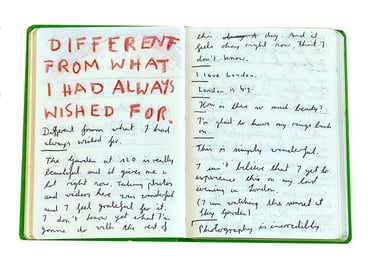 DIFFERENT
FROM WHAT
I HAD ALWAYS
WISHED FOR.
Different from what I had
always wished for.
The Garden at 120 is really
beautiful and it gives me a
lot right now. Taking photos
and videos here was wonderful
and I feel grateful for it.
I don't know yet what I'm
gonna do with the rest of
this day. And it
feels okay right now, that I
don't know.
I love London.
London is big.
How is there so much beauty?
I'm glad to have my rings back
on.
This is simply wonderful.
I can't believe that I get to
experience this on my last
evening in London.
(I am watching the sunset at
Sky Garden)
Photography is incredibly